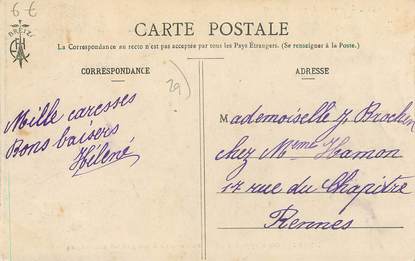 6 €
BREIZ
CARTE POSTALE
La Correspondance au recto n'est pas acceptée par tous les Pays Étrangers. (Se renseigner à la Poste.)
CORRESPONDANCE
ADRESSE
29
Mille caresses
Bons baisers
Hélène
Mademoiselle J Brochen
chez Mme Hamon
17 rue du Chapitre
Rennes